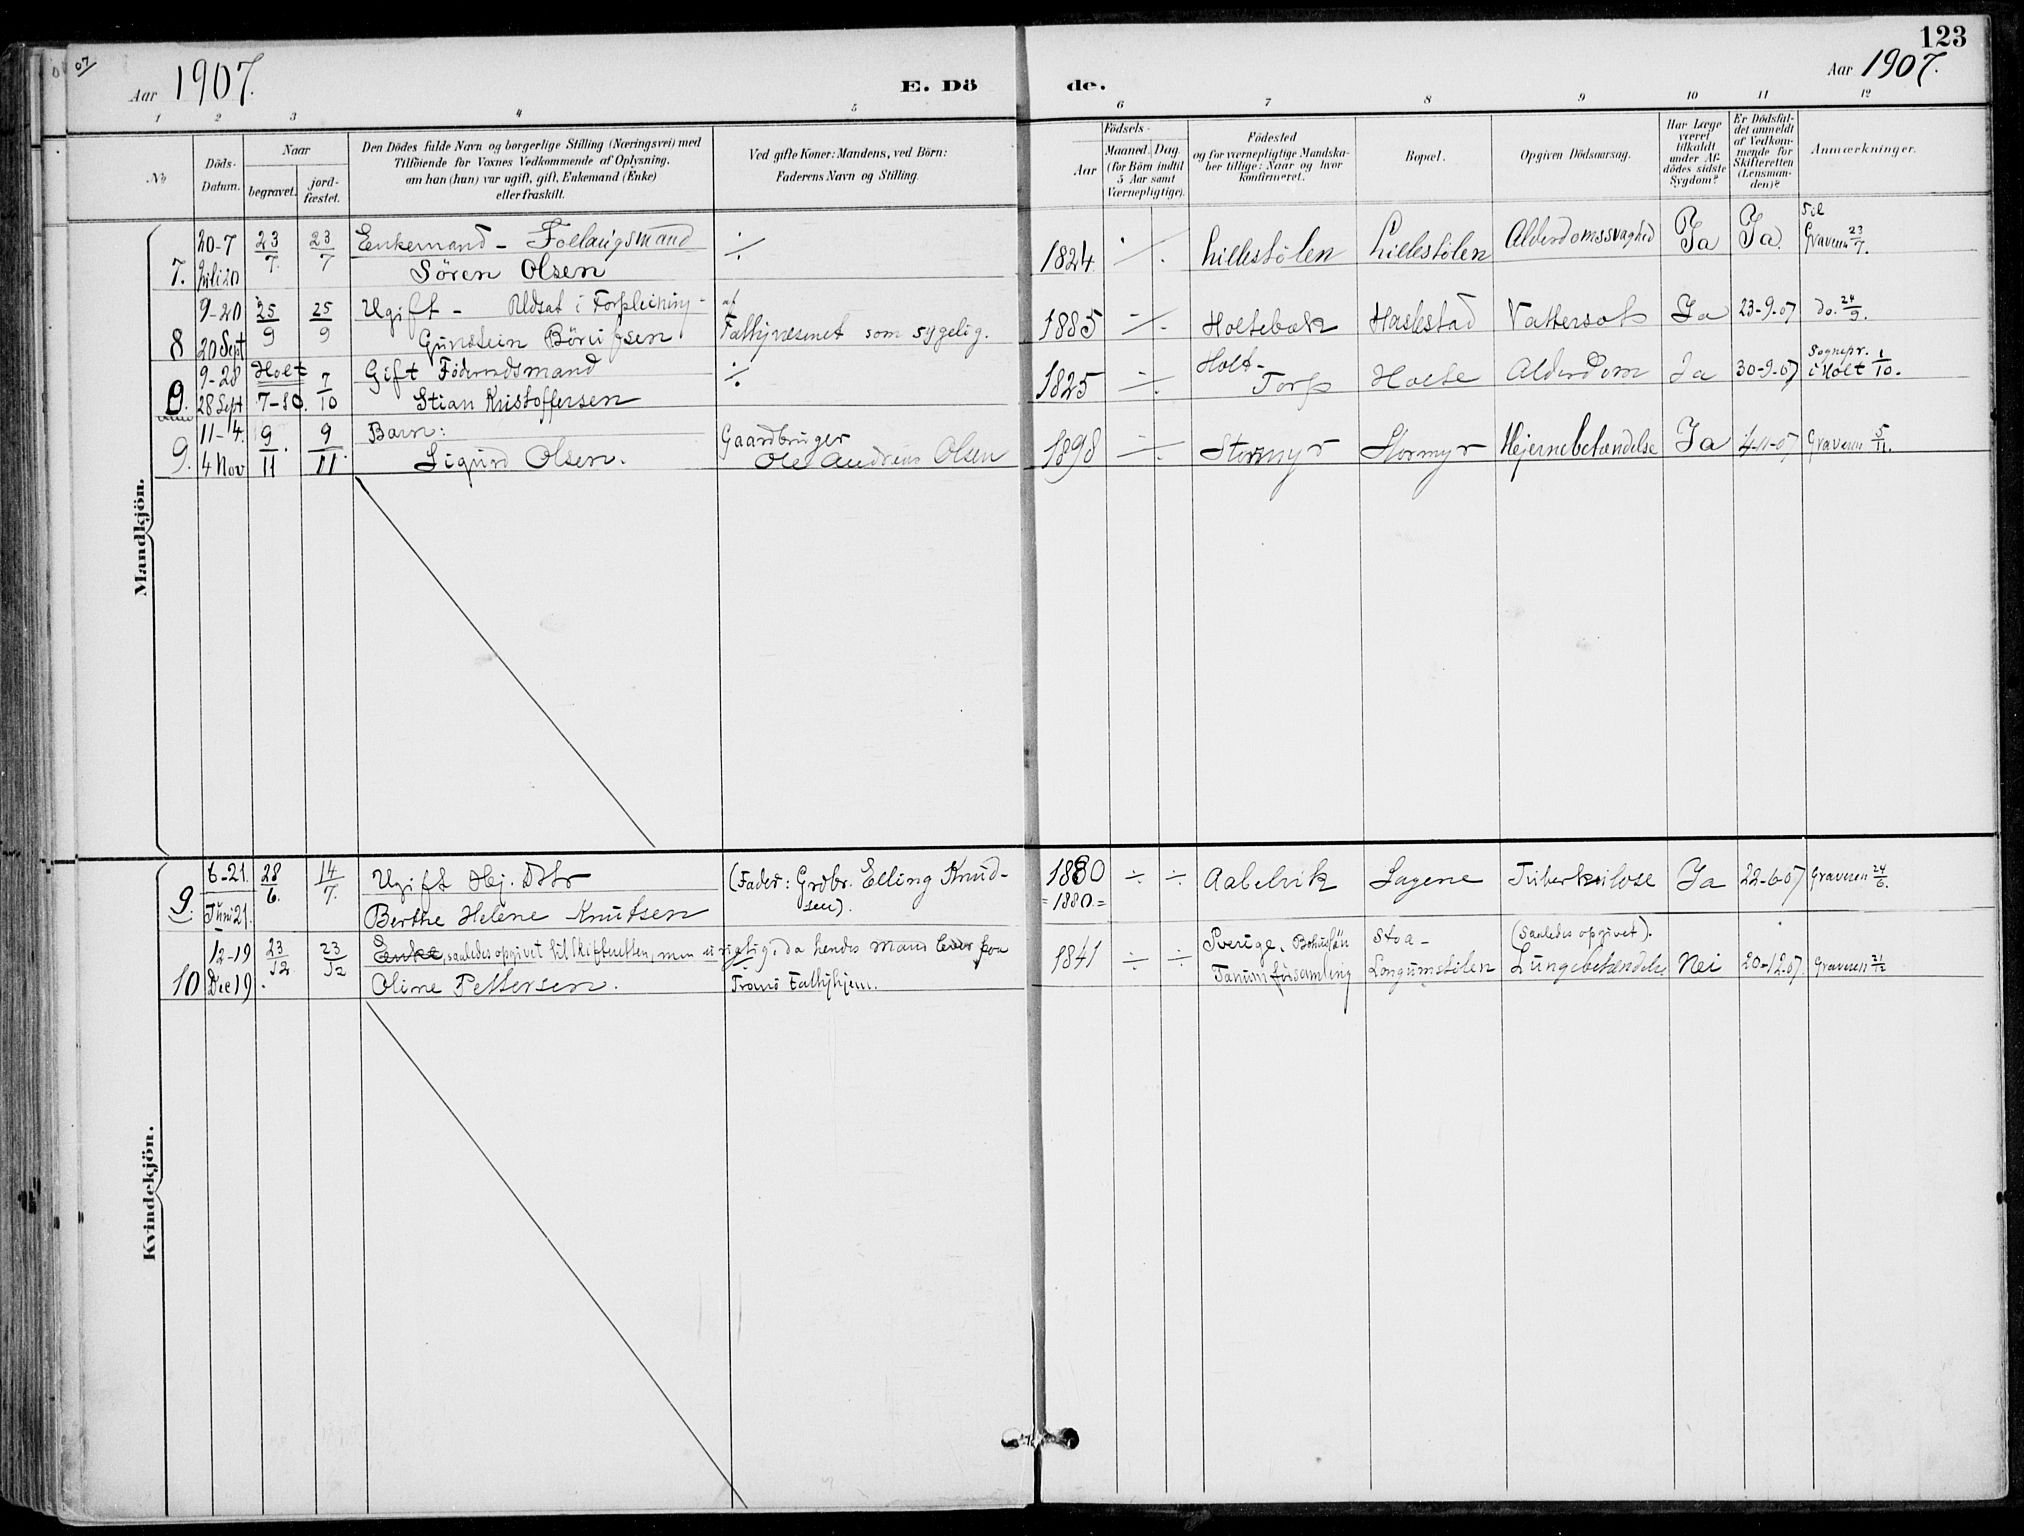 07
Aar 1907.
E. Dö
de.
123
Aar 1907.
1 2 3 4 5 6 7 8 9 10 11 12
No
Döds-
Datum.
Naar
begravet.
jord-
fæstet.
Den Dödes fulde Navn og borgerlige Stilling (Næringsvei) med
Tilföiende for Voxnes Vedkommende af Oplysning,
om han (hun) var ugift, gift, Enkemand (Enke)
eller fraskilt.
Ved gifte Koner: Mandens, ved Börn:
Faderens Navn og Stilling.
Födsels-
Aar
Maaned. Dag.
(for Börn indtil
5 Aar samt
Værnepligtige).
Födested
og for værnepligtige Mandska-
ber tillige: Naar og hvor
konfirmeret.
Bopæl.
Opgiven Dödsaarsag.
Har Læge
været
tilkaldt
under Af-
dödes sidste
Sygdom?
Er Dödsfal-
det anmeldt
af Vedkom-
mende for
Skifteretten
(Lensman-
den)?
Anmærkninger.
Mandkjön.
20-7 23/7. 23/7 Enkemand - Follaugsmand ÷ 1824. ÷ Lillestølen Lillestølen Alderdomssvaghed Ja Ja. Til Graveren 23/7.
7. Juli 20 Sören Olsen
9-20 25/9 25/9 Ugift - Udsat i Forpleining - af 1885 ÷ Holtebæk Haskestad Vattersot Ja 23-9-07 do. 24/9.
8 20 Sept Gundstein Börufsen Fattigvæsenet som sygelig.
9-28 Holt 7/10 Gift Föderaadsmand ÷ 1825 ÷ Holt- Torp Holte Alderdom Ja 30-9-07 Sognepr. i Holt 1/10.
28 Sept 7-10. Stian Kristoffersen
11-4. 9/11. 9/11. Barn: Gaardbruger 1898 ÷ Stormyr Stormyr Hjernebetændelse Ja 4-11-07 Graveren 5/11.
9. 4 Nov Sigurd Olsen. Ole Andreas Olsen
Kvindekjön.
6-21. 28/6. 14/7. Ugift Hj. Dttr (Fader: Grdbr. Elling Knud- 1880 ÷ ÷ Aabelvik Sagene Tuberkulose Ja 22-6-07 Graveren 24/6.
9. Juni 21. Berthe Helene Knutsen sen). =1880=
12-19 23/12. 23/12 Enke, saaledes opgivet til Skifteretten, men urigtig, da hendes Mand lever paa 1841 ÷ ÷ Sverige. Bohuslän Stoa- (saaledes opgivet). Nei 20-12.07. Graveren 21/12
10 Dec 19 Oline Pettersen. Tromö Fattighjem. Tanum församling Longumstölen Lungebetændelse